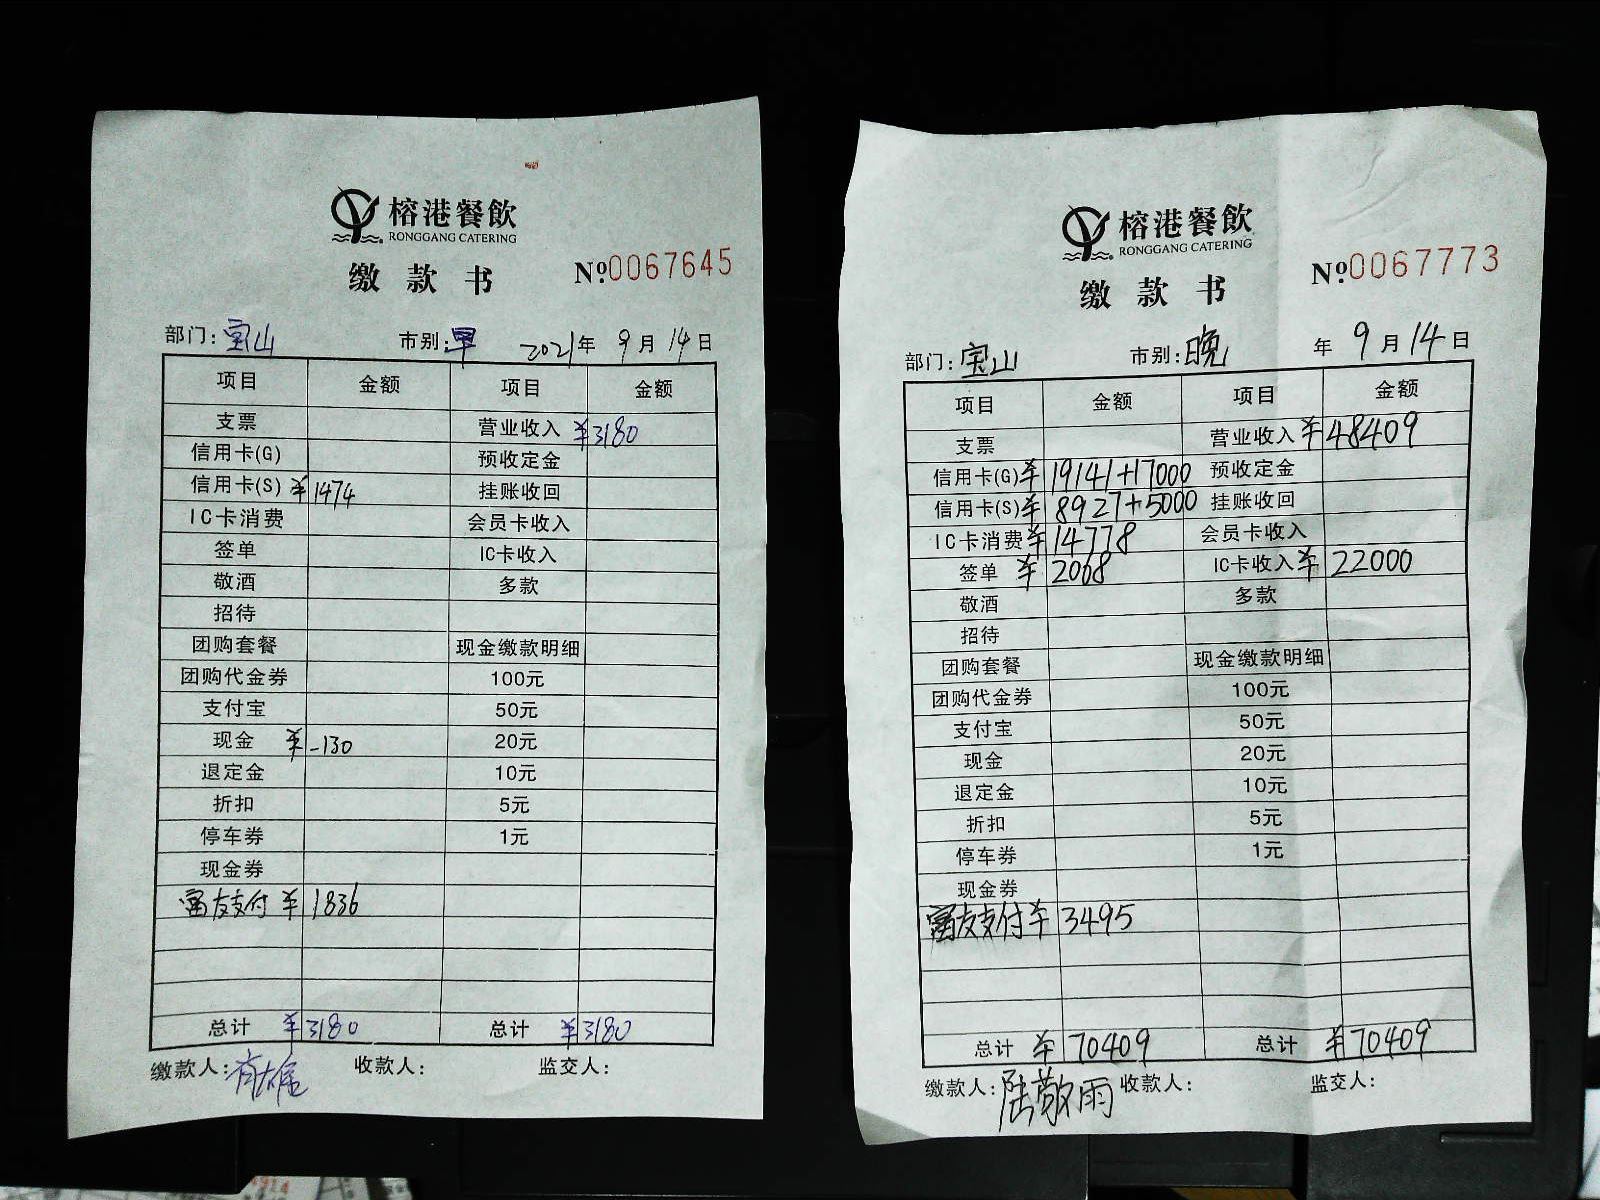 榕港餐飲
RONGGANG CATERING
缴款书 №0067645
部门:宝山 市别:早 2021年 9月 14日
项目 金额 项目 金额
支票 营业收入 ¥3180
信用卡(G) 预收定金
信用卡(S) ¥1474 挂账收回
IC卡消费 会员卡收入
签单 IC卡收入
敬酒 多款
招待
团购套餐 现金缴款明细
团购代金券 100元
支付宝 50元
现金 ¥-130 20元
退定金 10元
折扣 5元
停车券 1元
现金券
富友支付 ¥1836
总计 ¥3180 总计 ¥3180
缴款人: 收款人: 监交人:
榕港餐飲
RONGGANG CATERING
缴款书 №0067773
部门:宝山 市别:晚 年 9月14日
项目 金额 项目 金额
支票 营业收入 ¥48409
信用卡(G) ¥19141+17000 预收定金
信用卡(S) ¥8927+5000 挂账收回
IC卡消费 ¥14778 会员卡收入
签单 ¥2068 IC卡收入 ¥22000
敬酒 多款
招待
团购套餐 现金缴款明细
团购代金券 100元
支付宝 50元
现金 20元
退定金 10元
折扣 5元
停车券 1元
现金券
富友支付 ¥3495
总计 ¥70409 总计 ¥70409
缴款人:陆敬雨 收款人: 监交人: